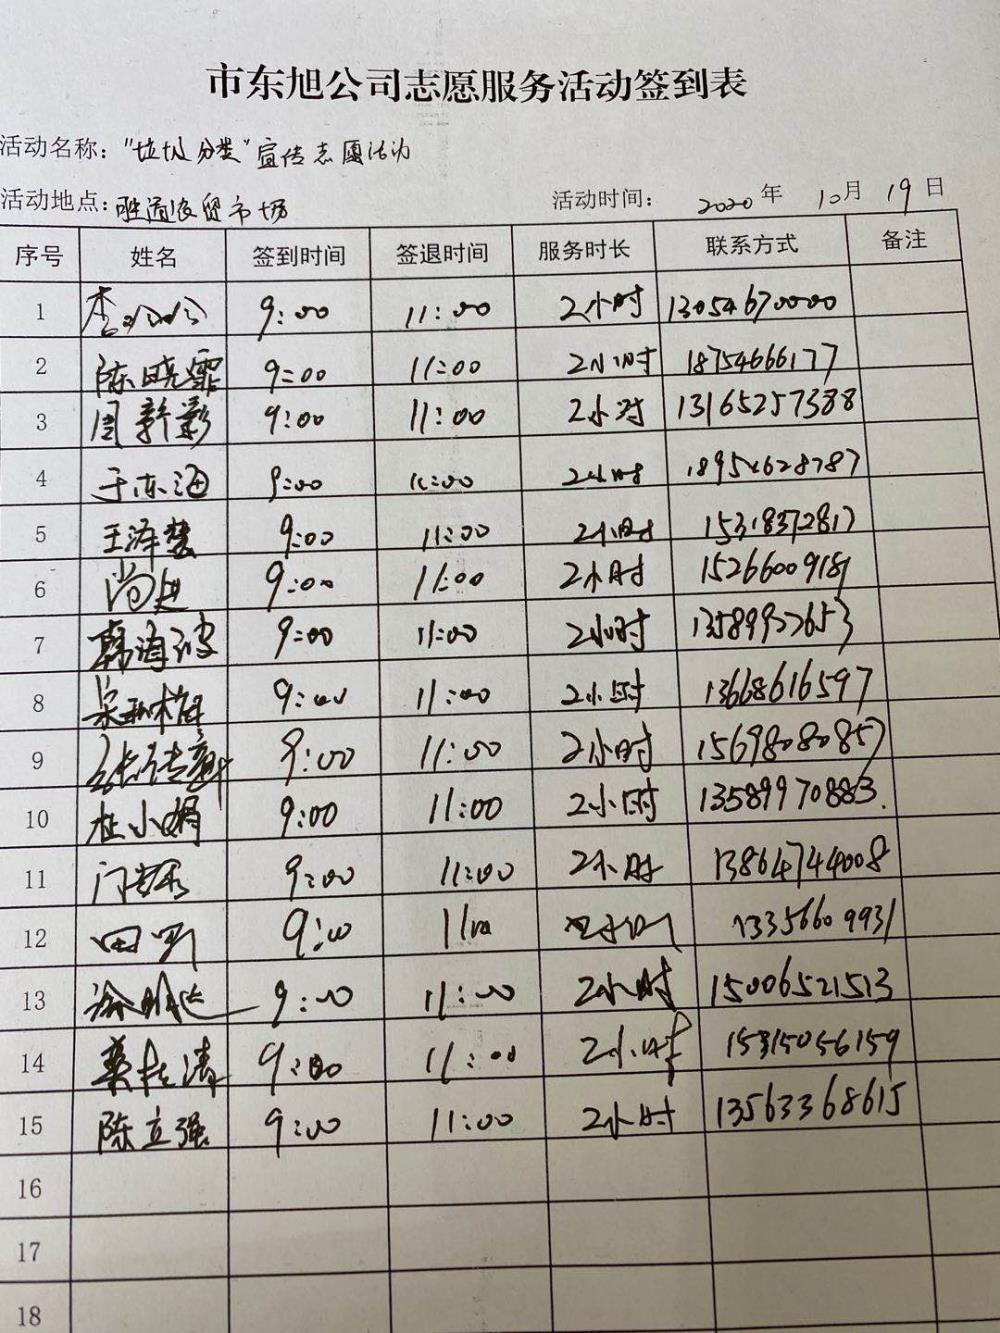 市东旭公司志愿服务活动签到表
活动名称："垃圾分类"宣传志愿活动
活动地点：胜通农贸市场 活动时间： 2020 年 10 月 19 日
序号 姓名 签到时间 签退时间 服务时长 联系方式 备注
1 9:00 11:00 2小时 13054670000
2 陈晓霏 9:00 11:00 2小时 18754666177
3 周新影 9:00 11:00 2小时 13165257388
4 于东海 9:00 11:00 2小时 18954628787
5 王泽慧 9:00 11:00 2小时 15318372817
6 尚进 9:00 11:00 2小时 15266009189
7 韩海波 9:00 11:00 2小时 13589957653
8 9:00 11:00 2小时 13668616597
9 9:00 11:00 2小时 15698080857
10 杜小娟 9:00 11:00 2小时 13589970883
11 9:00 11:00 2小时 13864744008
12 9:00 11:00 2小时 13356609931
13 9:00 11:00 2小时 15006521513
14 9:00 11:00 2小时 15315056159
15 陈立强 9:00 11:00 2小时 13563368615
16
17
18